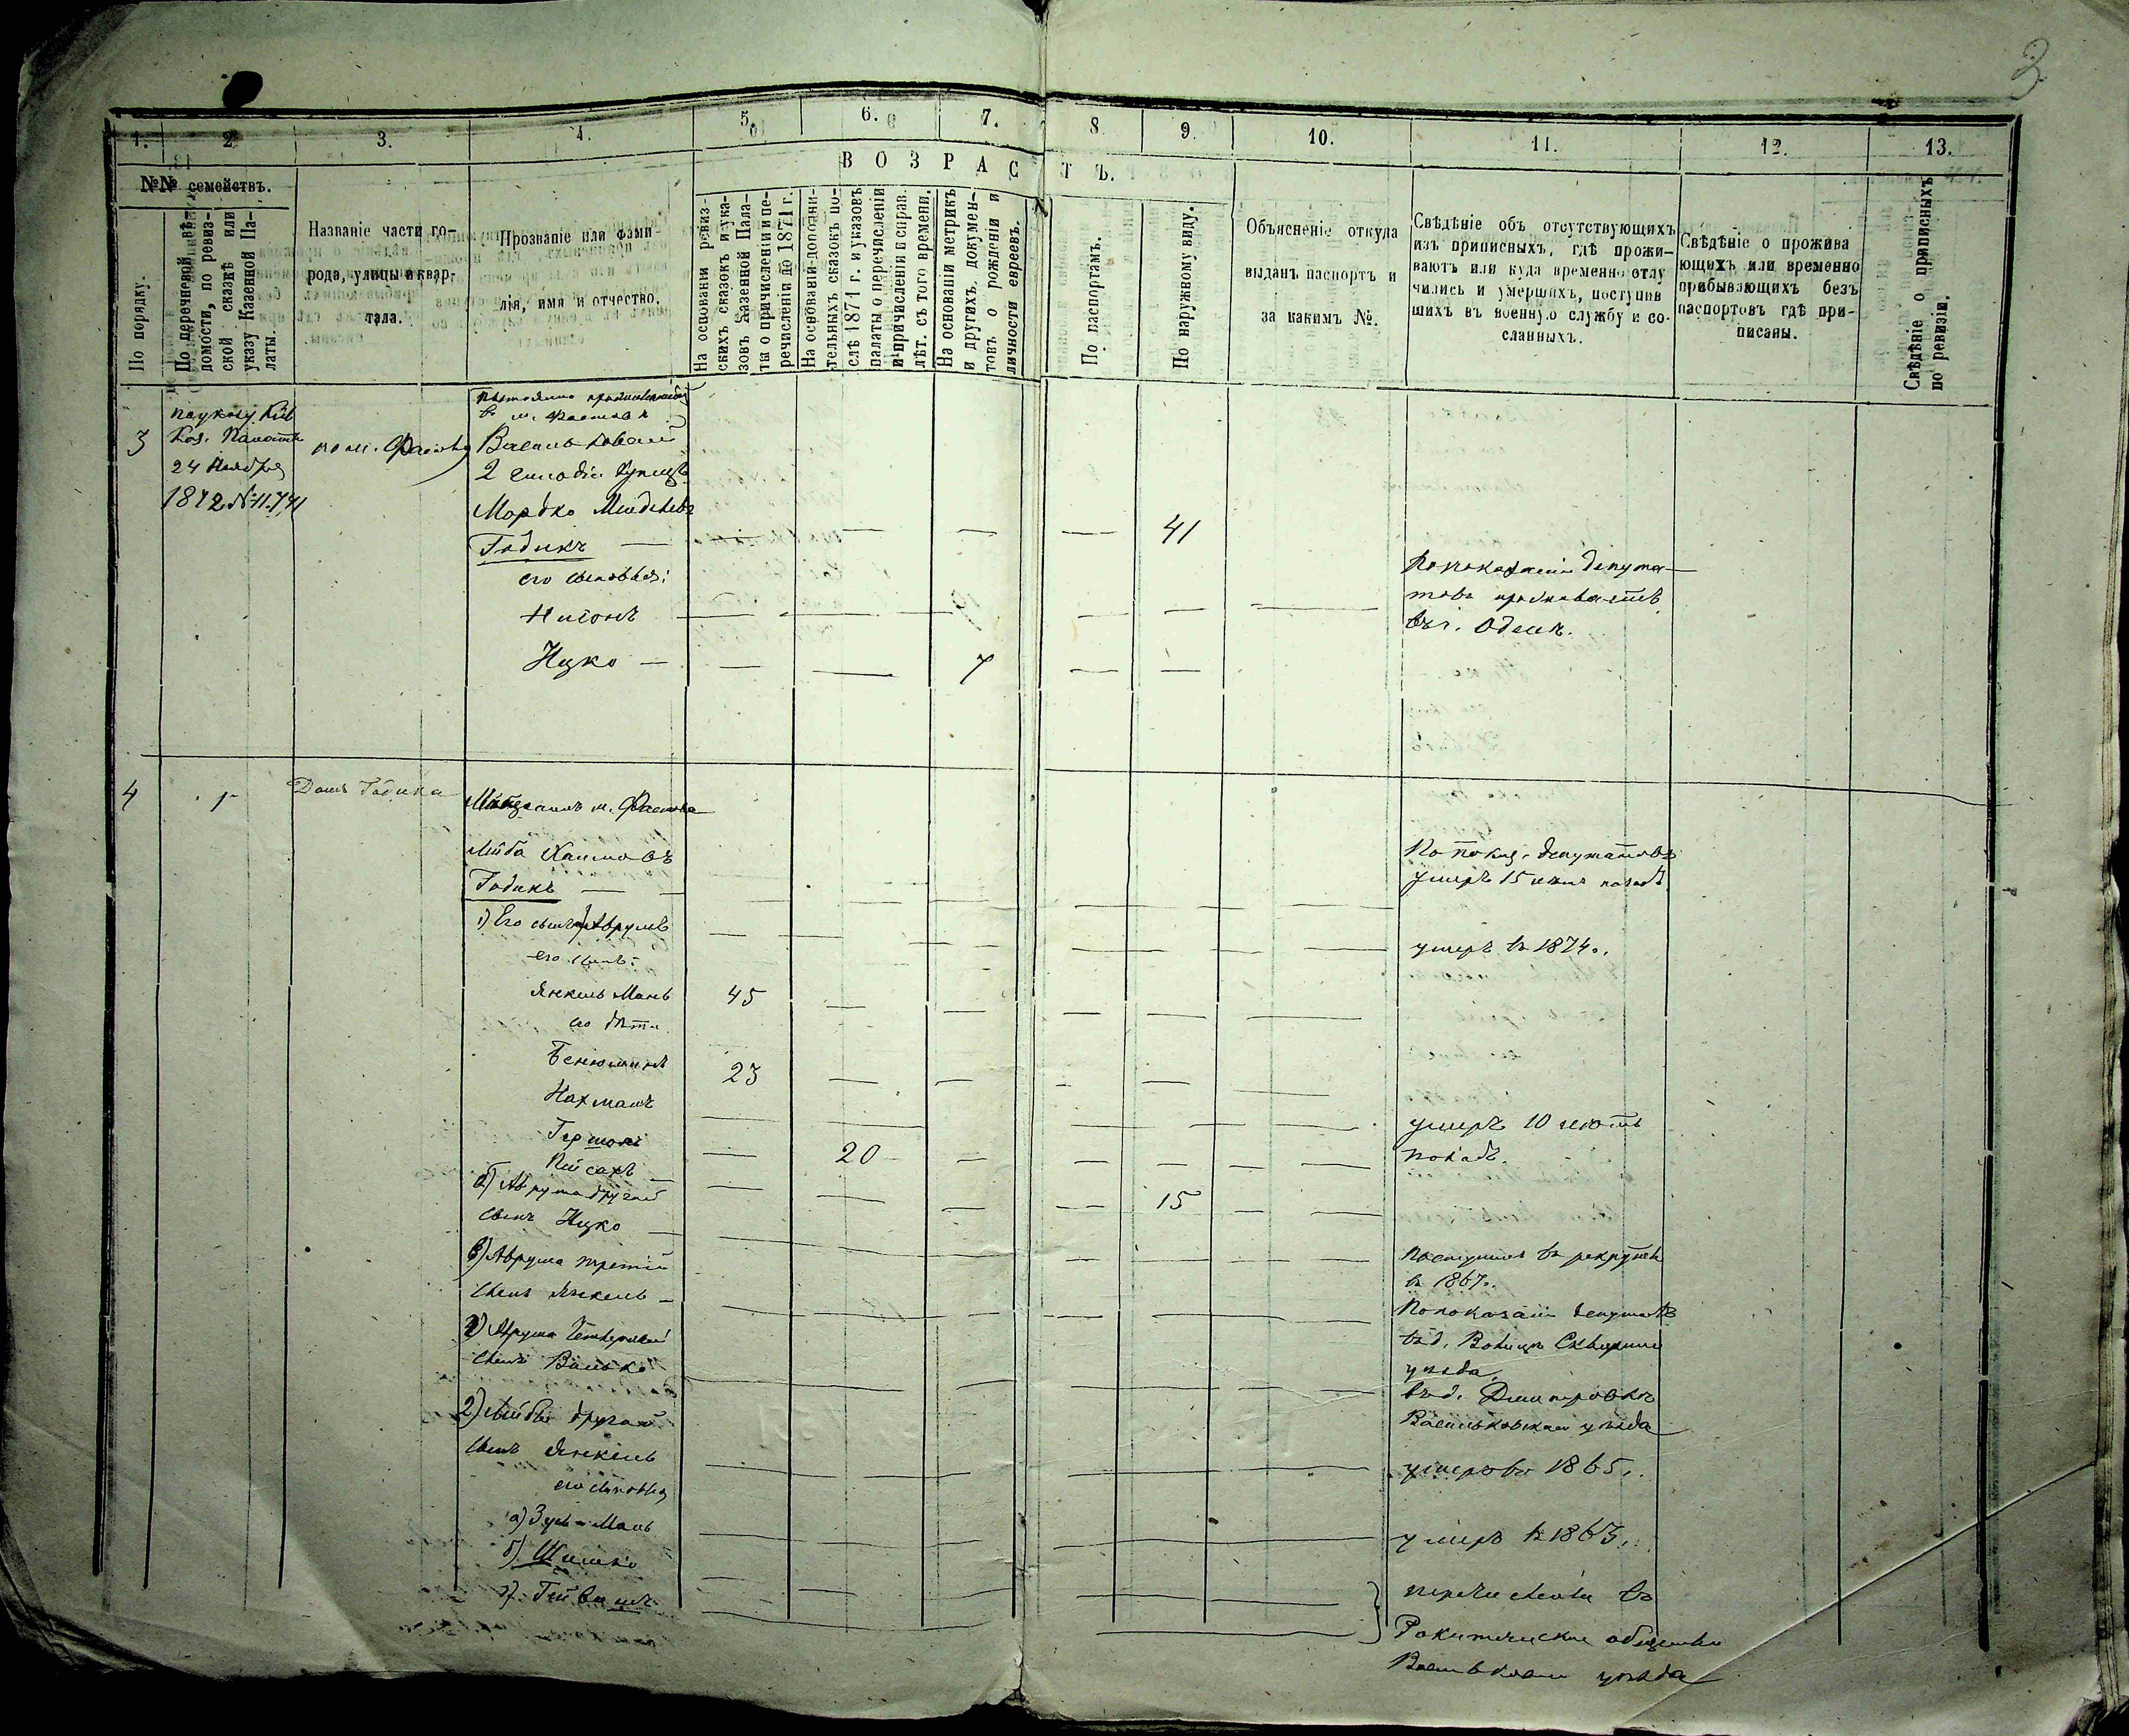 3
1.
2
3.
4.
5.
6.
7.
8.
9.
10.
11.
12.
13.
№№ семействъ.
ВОЗРАСТЪ.
По порядку.
По перечневой вѣ-
домости, по ревиз-
ской сказкѣ или
указу Казенной Па-
латы.
Названіе части го-
рода, улицы и квар-
тала.
Прозваніе или фами-
лія, имя и отчество.
На основаніи ревиз-
скихъ сказокъ и ука-
зовъ Казенной Пала-
ты о причисленіи и пе-
речисленіи до 1871 г.
На основаніи дополни-
тельныхъ сказокъ по-
слѣ 1871 г. и указовъ
палаты о перечисленіи
и причисленіи и справ.
лѣт. съ того времени.
На основаніи метрикъ
и другихъ докумен-
товъ о рожденіи и
личности евреевъ.
По паспортамъ.
По наружному виду.
Объясненіе откуда
выданъ паспортъ и
за какимъ №.
Свѣдѣніе объ отсутствующихъ
изъ приписныхъ, гдѣ прожи-
ваютъ или куда временно отлу
чились и умершихъ, поступив
шихъ въ военную службу и со-
сланныхъ.
Свѣдѣніе о прожива
ющихъ или временно
прибывающихъ безъ
паспортовъ гдѣ при-
писаны.
Свѣдѣніе о приписныхъ
по ревизіи.
3
по указу Кіев
Каз. Палаты
24 Ноября
1872 №
по м. Фастову
въ м. Фастовѣ
Васильковскій
2 гильдіи купецъ
Мордко
Годикъ — — — — — 41
его сыновья:
— — — — — —
По показанію депута-
товъ проживаетъ
въ г. Одессѣ.
Ицко — — — 7 — —
4
1
Домъ Годика
Мѣщанинъ м. Фастова
Лейба Хаимовъ
Годикъ —
По показ. депутатовъ
умеръ 15 лѣтъ назадъ
1) Его сынъ Аврумъ
умеръ въ 1874 г.
его сынъ:
Янкель Мань 45
его дѣти
Бенюминъ 23
Нахманъ
умеръ 10 лѣтъ
назадъ.
Гершонъ 20
Пейсахъ — 15
б) Аврума другой
сынъ Ицко —
Поступилъ въ рекруты
в 1867 г.
в) Аврума третій
сынъ Янкель —
По показанію депутатовъ
въ д. Сквирскаго
уѣзда
г) Аврума четвертый
сынъ Волько
въ д. Дмитровкѣ
Васильковскаго уѣзда
2) Лейбы другой
сынъ Янкель
умеръ въ 1865 г.
его сыновья
а) Мань
умеръ въ 1863 г.
б) Шимко
в)
перечислены въ
общество
Васильковскаго уѣзда